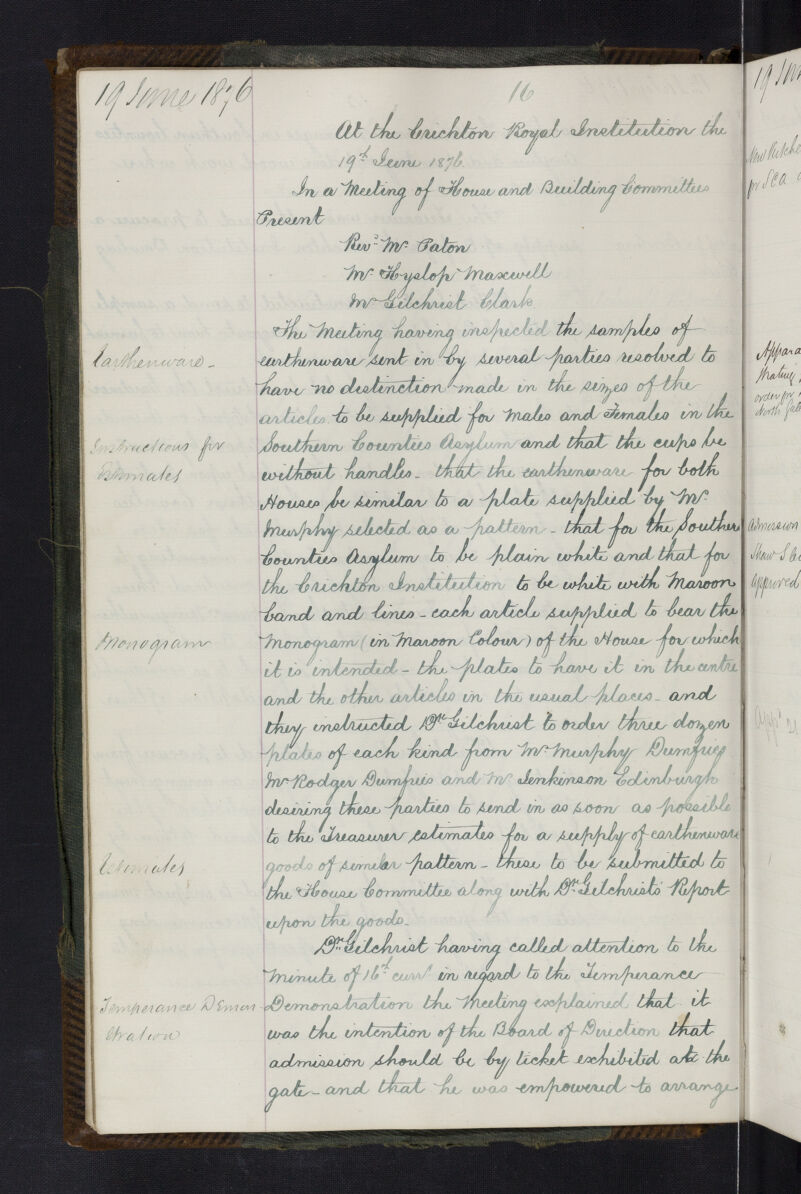 19 June 1876
16
At the Crichton Royal Institution the
19th June 1876.
In a Meeting of House and Building Committees
Present
Revd Mr Paton
Mr Hyslop Maxwell
Mr Gilchrist Clark
The Meeting having inspected the samples of
Earthenware -
earthenware sent in by several parties resolved to
have no distinction made in the sizes of the
articles to be supplied for Males and Females in the
Instructions for
Southern Counties Asylum and that the cups be
Estimates
without handles - that the earthenware for both
Houses be similar to a plate supplied by Mr
Murphy selected as a pattern - that for the Southern
Counties Asylum to be plain white and that for
the Crichton Institution to be white with Maroon
band and lines - each article supplied to bear the
Monogram
Monogram (in Maroon Colour) of the House for which
it is intended - the plates to have it in the centre
and the other articles in the usual places - and
they instructed Dr Gilchrist to order three dozen
plates of each kind from Mr Murphy Dumfries
Mr Rodger Dumfries and Mr Jenkinson Edinburgh
desiring these parties to send in as soon as possible
to the Treasurer estimates for a supply of earthenware
Estimates
goods of similar pattern - these to be submitted to
the House Committee along with Dr Gilchrist's Report
upon the goods -
Dr Gilchrist having called attention to the
Minute of 16th currt in regard to the Temperance
Temperance Demon
Demonstration the Meeting explained that it
stration
was the intention of the Board of Direction that
admission should be by ticket exhibited at the
gate - and that he was empowered to arrange
19 Jun
New Kitche
for SCA
Appara
order for
North
Admission
Approved